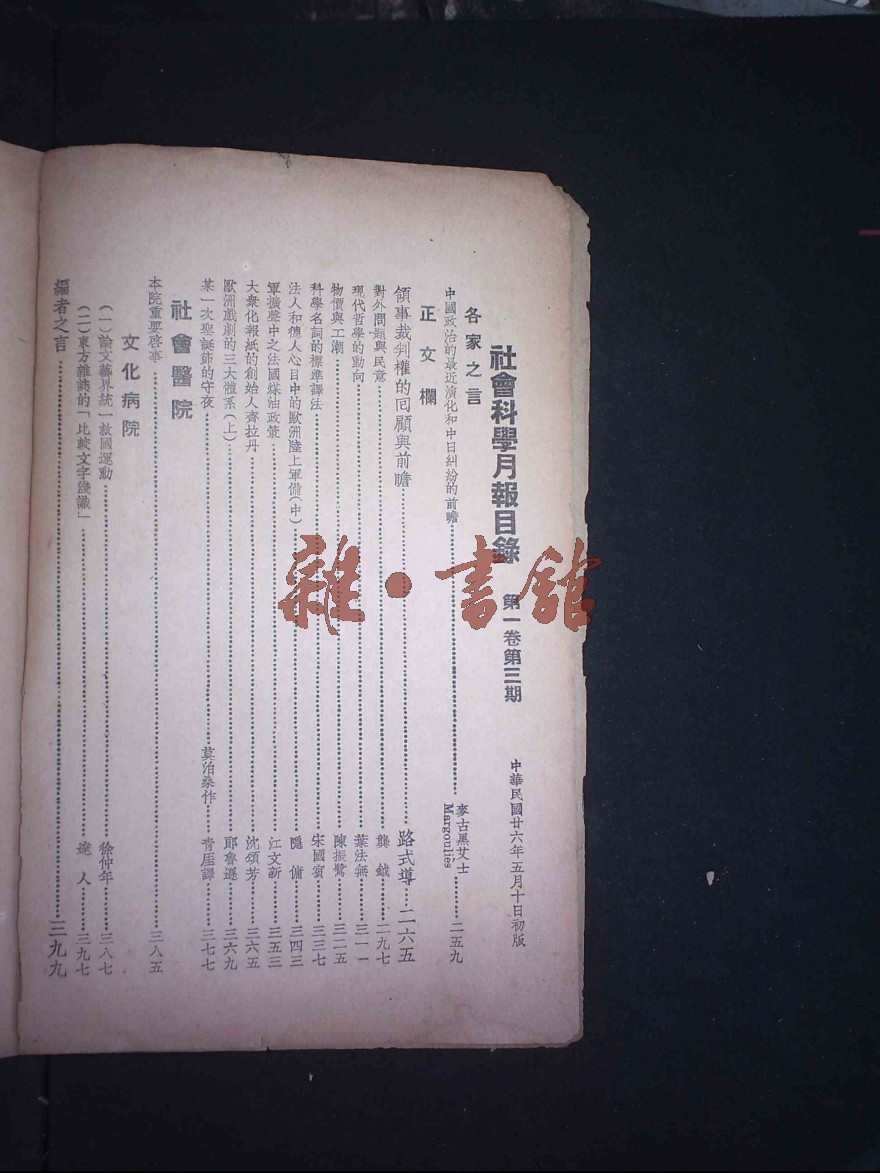 社會科學月報目錄 第一卷第三期 中華民國廿六年五月十日初版
各家之言
中國政治的最近演化和中日糾紛的前瞻 麥古黑艾士 Margouliès 二五九
正文欄
領事裁判權的回顧與前瞻 路式導 二六五
對外問題與民意 龔鉞 二九七
現代哲學的動向 葉法無 三一一
物價與工潮 陳振鷺 三二五
科學名詞的標準譯法 宋國賓 三三七
法人和德人心目中的歐洲陸上軍備(中) 隱傭 三四三
軍擴聲中之法國煤油政策 江文新 三五三
大衆化報紙的創始人齊拉丹 沈頌芳 三六五
歐洲戲劇的三大體系(上) 郎魯遜 三六九
某一次聖誕節的守夜 莫泊桑作 青厓譯 三七七
社會醫院
本院重要啓事 三八五
文化病院
(一)論文藝界統一救國運動 徐仲年 三八七
(二)東方雜誌的「比較文字淺識」 達人 三九七
編者之言 三九九
雜·書館